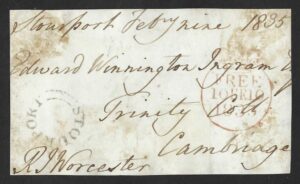 Stourport Feby nine 1835
Edward Winnington Ingram Esq
Trinity Coll
Cambridge
RJWorcester
FREE
10FE10
1835